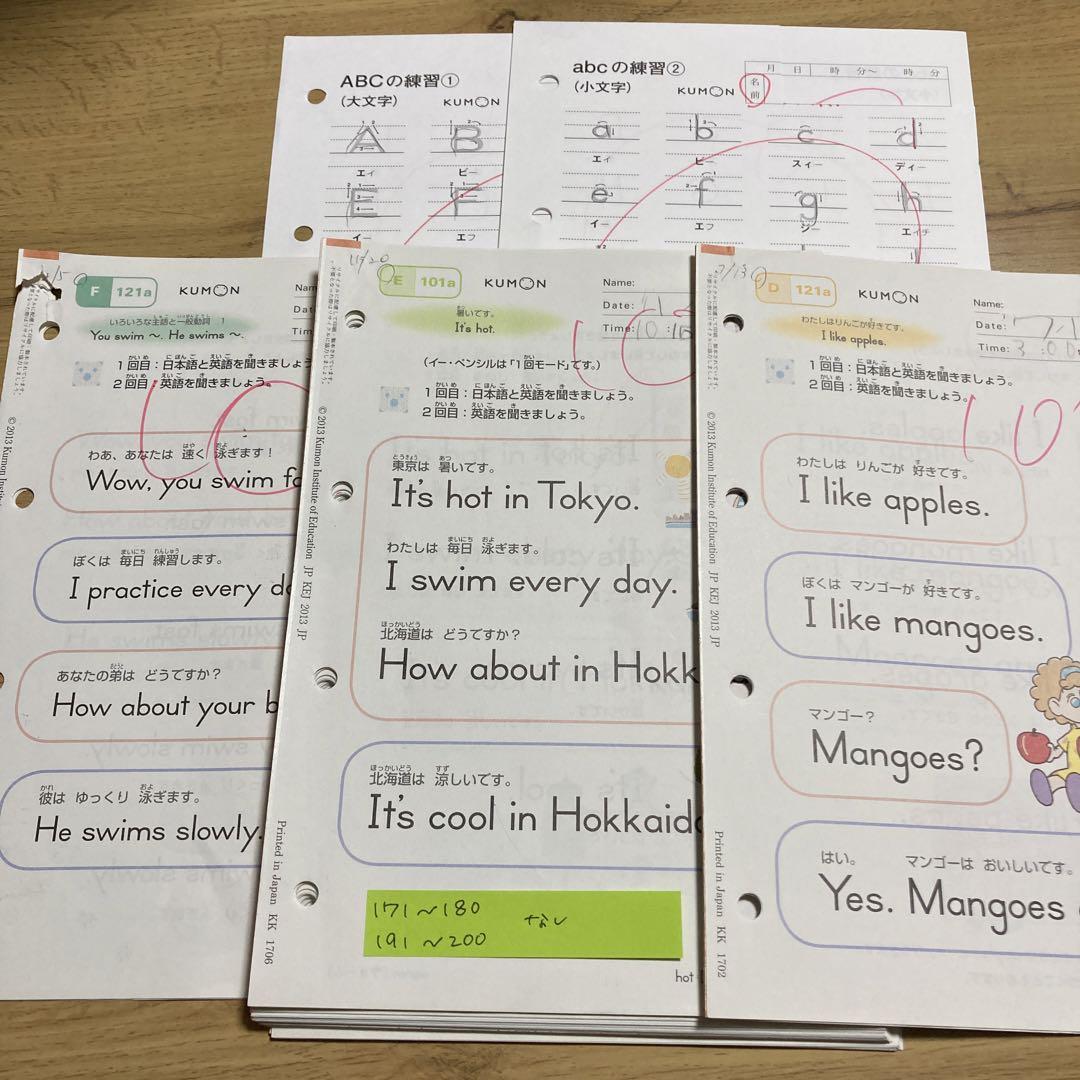 ABCの練習①
(大文字)
KUMON
A B
エィ ビー
E F
イー エフ
abcの練習②
(小文字)
KUMON
月 日 時 分〜 時 分
名前
a b c d
エィ ビー スィー ディー
e f g h
イー エフ ジー エイチ
F 121a
KUMON
Name:
Date:
Time:
いろいろな主語と一般動詞 1
You swim 〜. He swims 〜.
1回目:日本語と英語を聞きましょう
2回目:英語を聞きましょう。
わあ、あなたは 速く 泳ぎます!
Wow, you swim fa
ぼくは 毎日 練習します。
I practice every da
あなたの弟は どうですか?
How about your b
彼は ゆっくり 泳ぎます。
He swims slowly.
© 2013 Kumon Institute of Education JP KEJ 2013 JP
Printed in Japan KK 1706
11/20
E 101a
KUMON
Name:
Date:
Time: 10:
暑いです。
It's hot.
(イー・ペンシルは「1回モード」です。)
1回目:日本語と英語を聞きましょう。
2回目:英語を聞きましょう。
東京は 暑いです。
It's hot in Tokyo.
わたしは 毎日 泳ぎます。
I swim every day.
北海道は どうですか?
How about in Hokk
北海道は 涼しいです。
It's cool in Hokkaido
171〜180 なし
191〜200
hot
© 2013 Kumon Institute of Education JP KEJ 2013 JP
Printed in Japan KK 1702
7/13
D 121a
KUMON
Name:
Date: 7/1
Time: 3:00
わたしはりんごが好きです。
I like apples.
1回目:日本語と英語を聞きましょう
2回目:英語を聞きましょう。
わたしは りんごが 好きです。
I like apples.
ぼくは マンゴーが 好きです。
I like mangoes.
マンゴー?
Mangoes?
はい。 マンゴーは おいしいです。
Yes. Mangoes